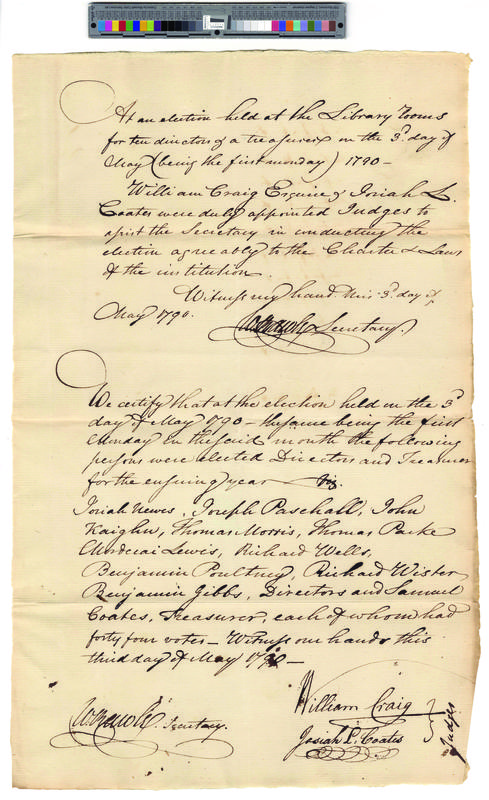 At an election held at the Library rooms
for ten directors & a treasurer on the 3d day of
May (being the first monday) 1790 —
William Craig Esquire & Josiah L.
Coates were duly appointed Judges to
assist the Secretary in conducting the
election agreeably to the Charter & Laws
of the institution.
Witness my hand this 3d day of
May 1790.
Secretary.
We certify that at the election held on the 3d
day of May 1790 — the same being the first
Monday in the said month the following
persons were elected Directors and Treasurer
for the ensuing year — Viz.
Josiah Hewes, Joseph Paschall, John
Kaighn, Thomas Morris, Thomas Parke
Mordecai Lewis, Richard Wells,
Benjamin Poultney, Richard Wister
Benjamin Gibbs, Directors and Samuel
Coates, Treasurer, each of whom had
forty four votes — Witness our hands this
third day of May 1790 —
William Craig
Josiah L. Coates
Judges
Secretary.